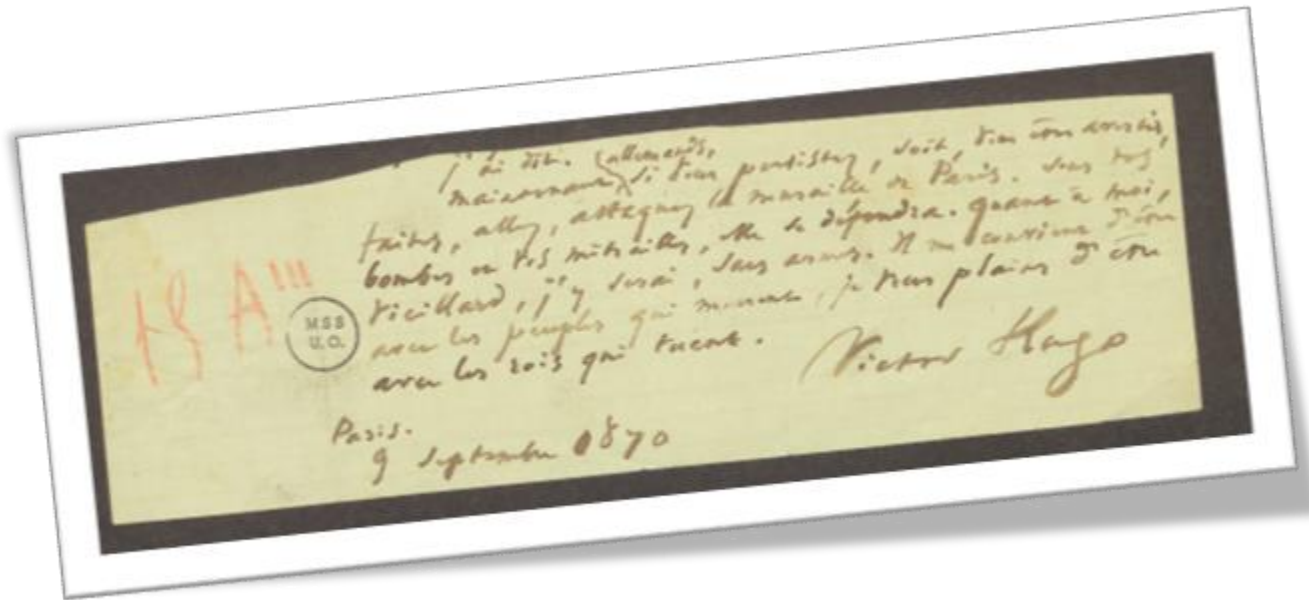 j'ai dit. allemands,
maintenant si vous persistez, soit, vous êtes avertis,
faites, allez, attaquez la muraille de Paris. Sous vos
bombes et vos mitrailles, elle se défendra. Quant à moi,
vieillard, j'y serai, sans armes. Il me convient d'être
avec les peuples qui meurent, je vous plains d'être
avec les rois qui tuent.
Victor Hugo
Paris.
9 septembre 1870
18 A'''
MSS
U.O.